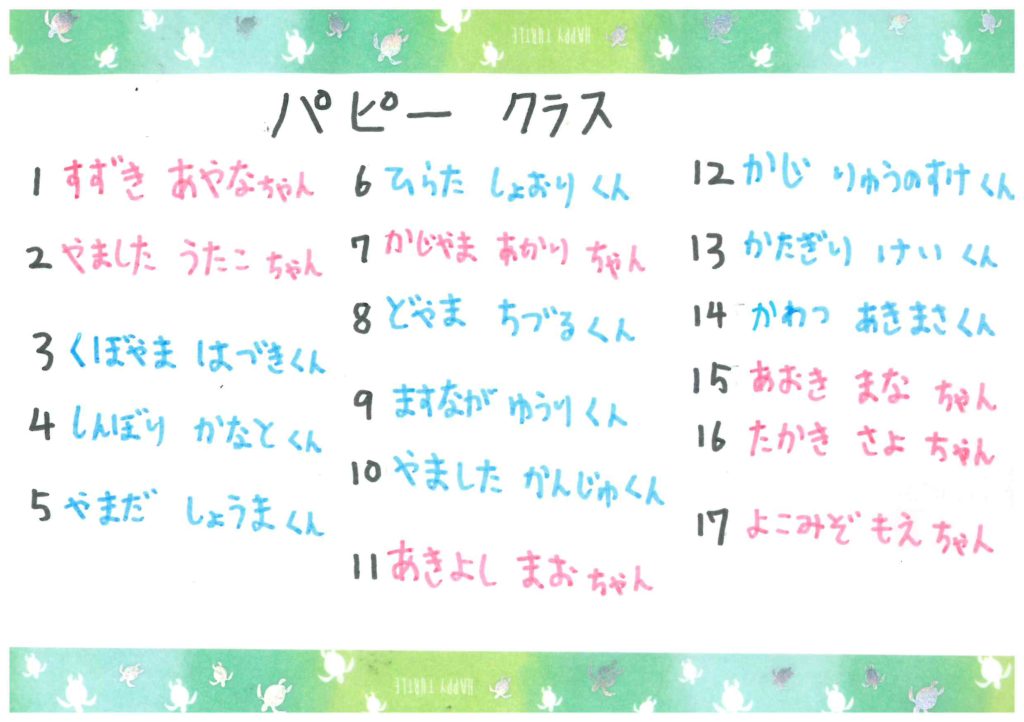 HAPPY TURTLE
パピー クラス
1 すずき あやなちゃん
2 やました うたこ ちゃん
3 くぼやま はづきくん
4 しんぼり かなとくん
5 やまだ しょうまくん
6 ひらた しおり くん
7 かじやま あかり ちゃん
8 どやま ちづるくん
9 ますなが ゆうりくん
10 やました かんじゅくん
11 あきよし まおちゃん
12 かじ りゅうのすけくん
13 かたぎり けい くん
14 かわつ あきまさくん
15 あおき まな ちゃん
16 たかき さよ ちゃん
17 よこみぞ もえ ちゃん
HAPPY TURTLE